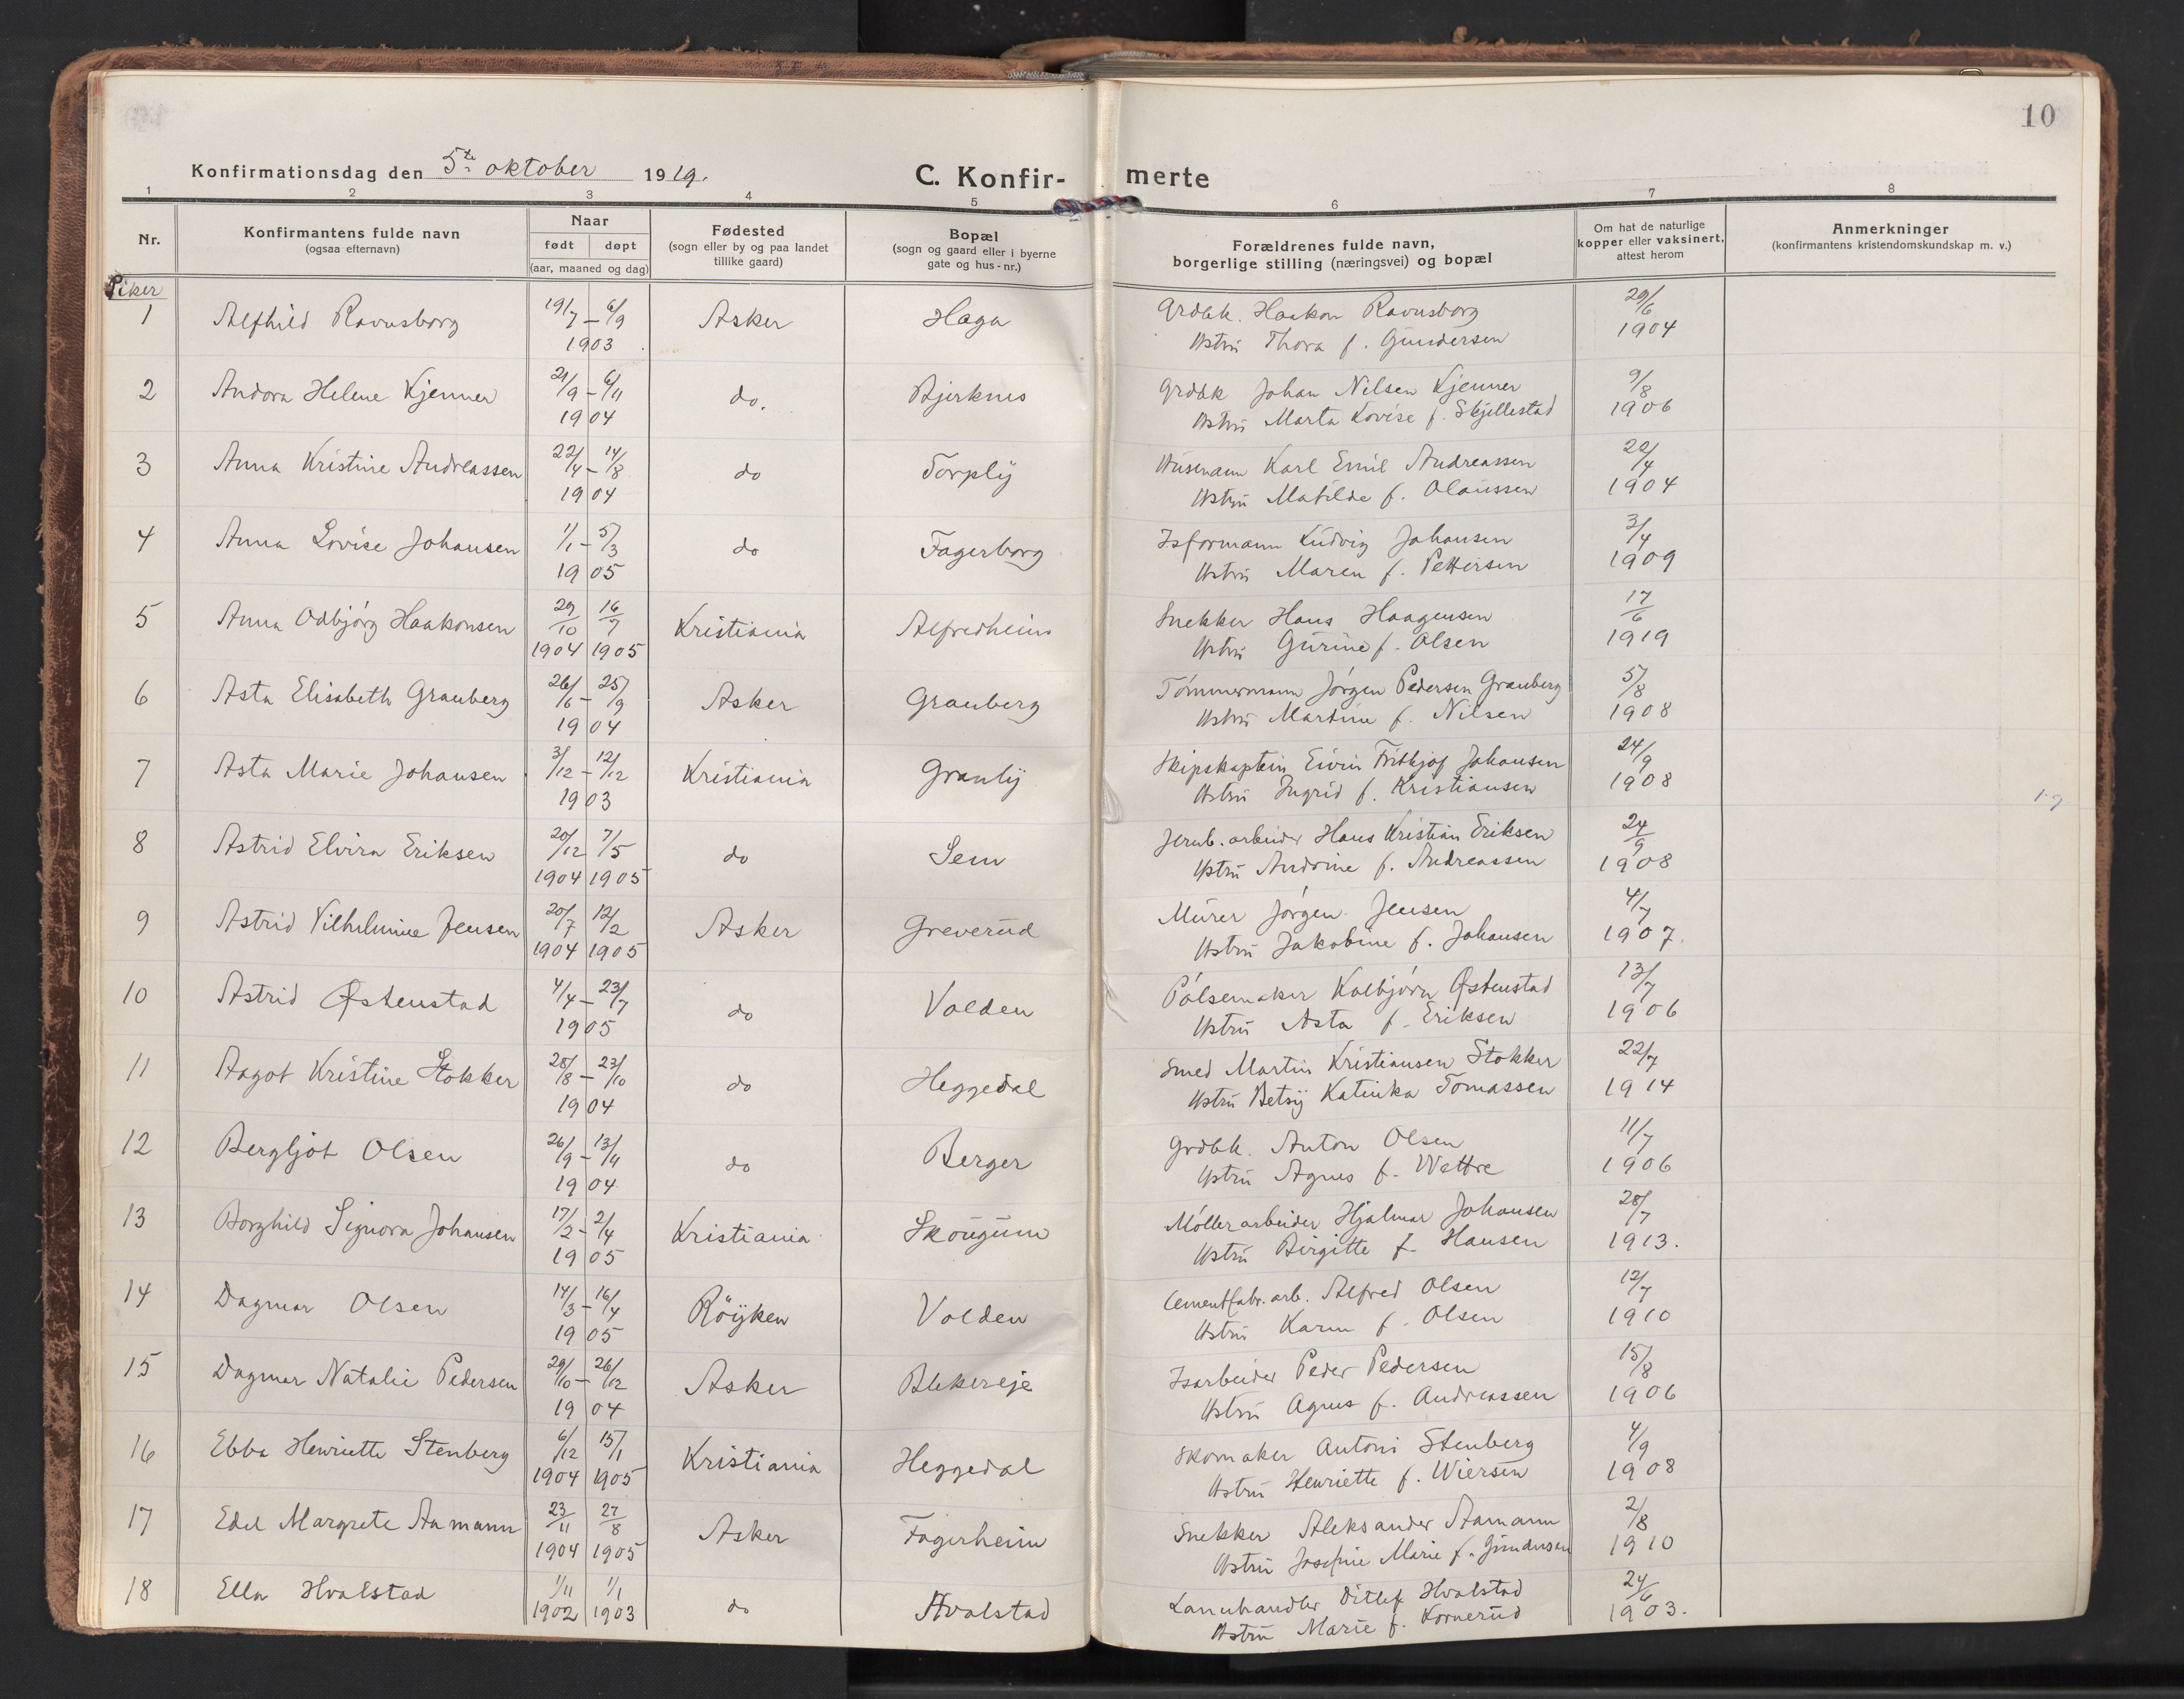 10
Konfirmationsdag den 5te oktober 1919.
C. Konfir- merte
1 2 3 4 5 6 7 8
Nr.
Konfirmantens fulde navn
(ogsaa efternavn)
Naar
født døpt
(aar, maaned og dag)
Fødested
(sogn eller by og paa landet
tillike gaard)
Bopæl
(sogn og gaard eller i byerne
gate og hus-nr.)
Forældrenes fulde navn,
borgerlige stilling (næringsvei) og bopæl
Om hat de naturlige
kopper eller vaksinert,
attest herom
Anmerkninger
(konfirmantens kristendomskundskap m. v.)
Piker
1 Alfhild Ravnsborg 19/7 – 6/9 Asker Haga Grdbk. Haakon Ravnsborg 29/6
1903 Hstru Thora f. Gundersen 1904
2 Andora Helene Kjenner 21/9 – 6/11 do. Bjerknes Grdbk Johan Nilsen Kjenner 9/8
1904 Hstru Marta Lovise f. Skjellestad 1906
3 Anna Kristine Andreassen 22/4 – 14/8 do Torply Husmann Karl Emil Andreassen 22/4
1904 Hstru Matilde f. Olaussen 1904
4 Anna Lovise Johansen 1/1 – 5/3 do Fagerborg Isformann Ludvig Johansen 3/4
1905 Hstru Maren f. Pettersen 1909
5 Anna Odbjørg Haakonsen 29/10 16/7 Kristiania Alfredheim Snekker Hans Haagensen 17/6
1904 1905 Hstru Gurine f. Olsen 1919
6 Asta Elisabeth Granberg 26/6 – 25/9 Asker Granberg Tømmermann Jørgen Pedersen Granberg 5/8
1904 Hstru Martine f. Nilsen 1908
7 Asta Marie Johansen 3/12 – 12/12 Kristiania Granly Skipskaptein Eivin Fritjof Johansen 24/9
1903 Hstru Ingrid f. Kristiansen 1908
8 Astrid Elvira Eriksen 20/12 7/5 do Sem Jernb. arbeider Hans Kristian Eriksen 24/9
1904 1905 Hstru Andrine f. Andreassen 1908
9 Astrid Vilhelmine Jensen 20/7 12/2 Asker Greverud Murer Jørgen Jensen 4/7
1904 1905 Hstru Jakobine f. Johansen 1907.
10 Astrid Østenstad 4/4 – 23/7 do Volden Pølsemaker Kolbjørn Østenstad 13/7
1905 Hstru Asta f. Eriksen 1906
11 Aagot Kristine Stokker 28/8 – 23/10 do Heggedal Smed Martin Kristiansen Stokker 22/7
1904 Hstru Betsy Katinka Tomassen 1914
12 Bergljot Olsen 26/9 – 13/11 do Berger Grdbk. Anton Olsen 11/7
1904 Hstru Agnes f. Wettre 1906
13 Borghild Signora Johansen 17/2 – 2/4 Kristiania Skougum Møllerarbeider Hjalmar Johansen 28/7
1905 Hstru Birgitte f. Hansen 1913.
14 Dagmar Olsen 14/3 – 16/4 Röyken Volden Cementfabr. arb. Alfred Olsen 12/7
1905 Hstru Karen f. Olsen 1910
15 Dagmar Natalie Pedersen 29/10 – 26/12 Asker Blekereje Isarbeider Peder Pedersen 15/8
1904 Hstru Agnes f. Andreassen 1906
16 Ebba Henriette Stenberg 6/12 15/1 Kristiania Heggedal Skomaker Antoni Stenberg 4/9
1904 1905 Hstru Henriette f. Wiersen 1908
17 Edel Margrete Aamann 23/11 27/8 Asker Fagerheim Snekker Aleksander Aamann 2/8
1904 1905 Hstru Josefine Marie f. Gundersen 1910
18 Ella Hvalstad 1/11 1/1 do Hvalstad Landhandler Ditlef Hvalstad 24/6
1902 1903 Hstru Marie f. Kornerud 1903.